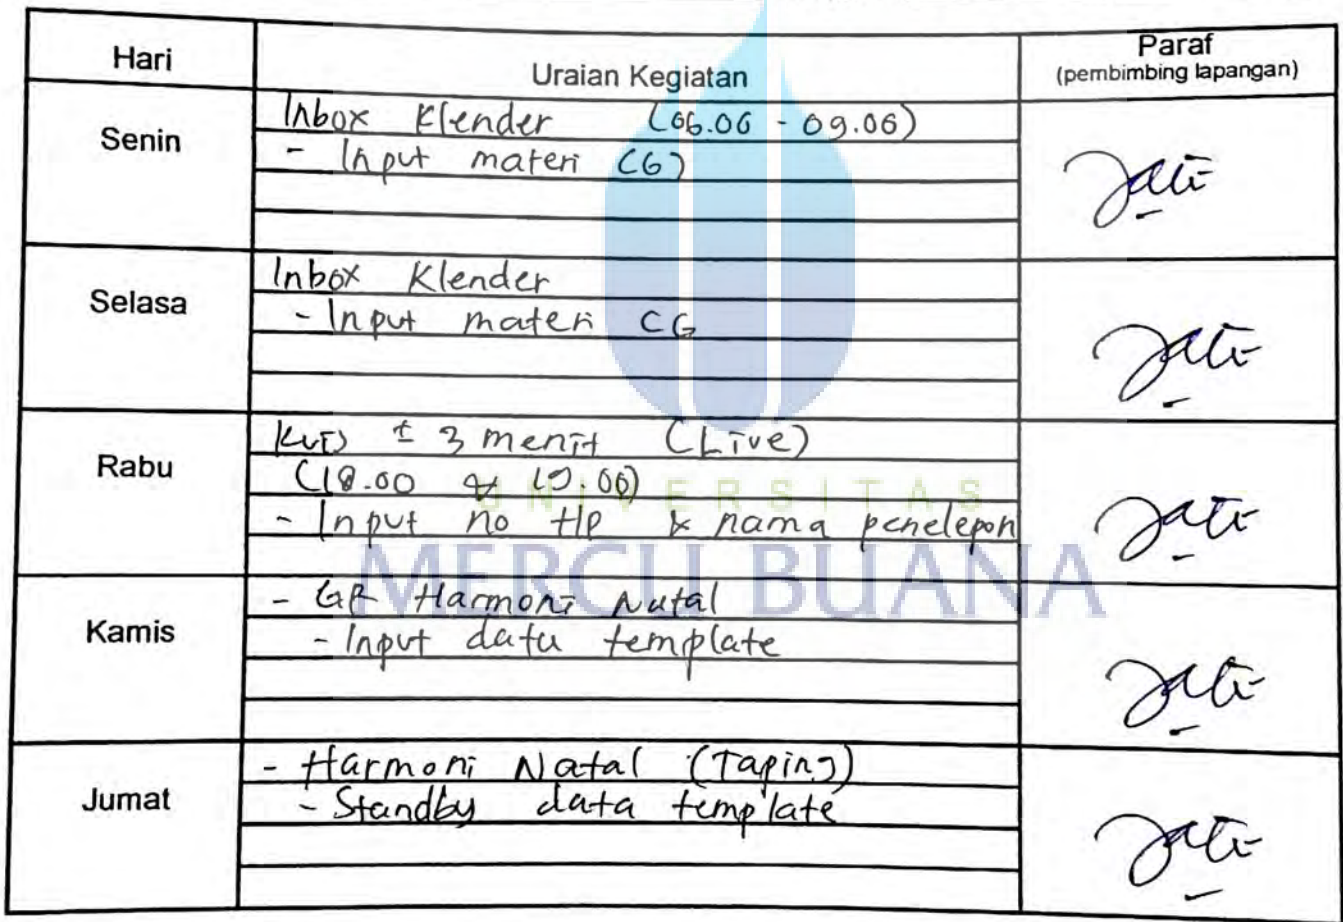 Hari
Uraian Kegiatan
Paraf
(pembimbing lapangan)
Senin
Inbox Klender (06.00 - 09.00)
- Input materi CG)
Selasa
Inbox Klender
- Input materi CG
Rabu
Kuis ± 3 menit (Live)
(18.00 & 19.00)
- Input no HP & nama penelepon
Kamis
- GR Harmoni Natal
- Input data template
Jumat
- Harmoni Natal (Taping)
- Standby data template
UNIVERSITAS
MERCU BUANA